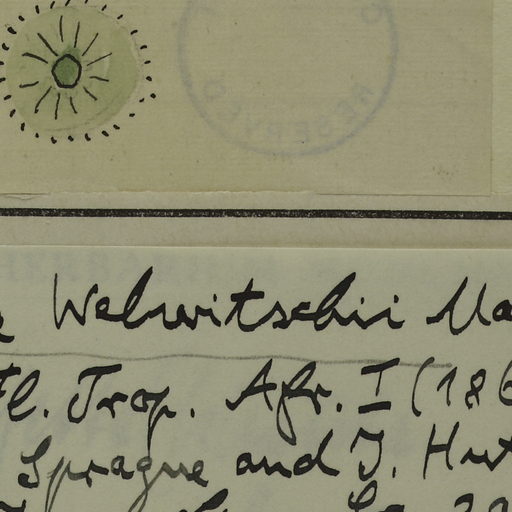 RESERVED
Welwitschii Ma
Fl. Trop. Afr. I (186
Sprague and J. Hut